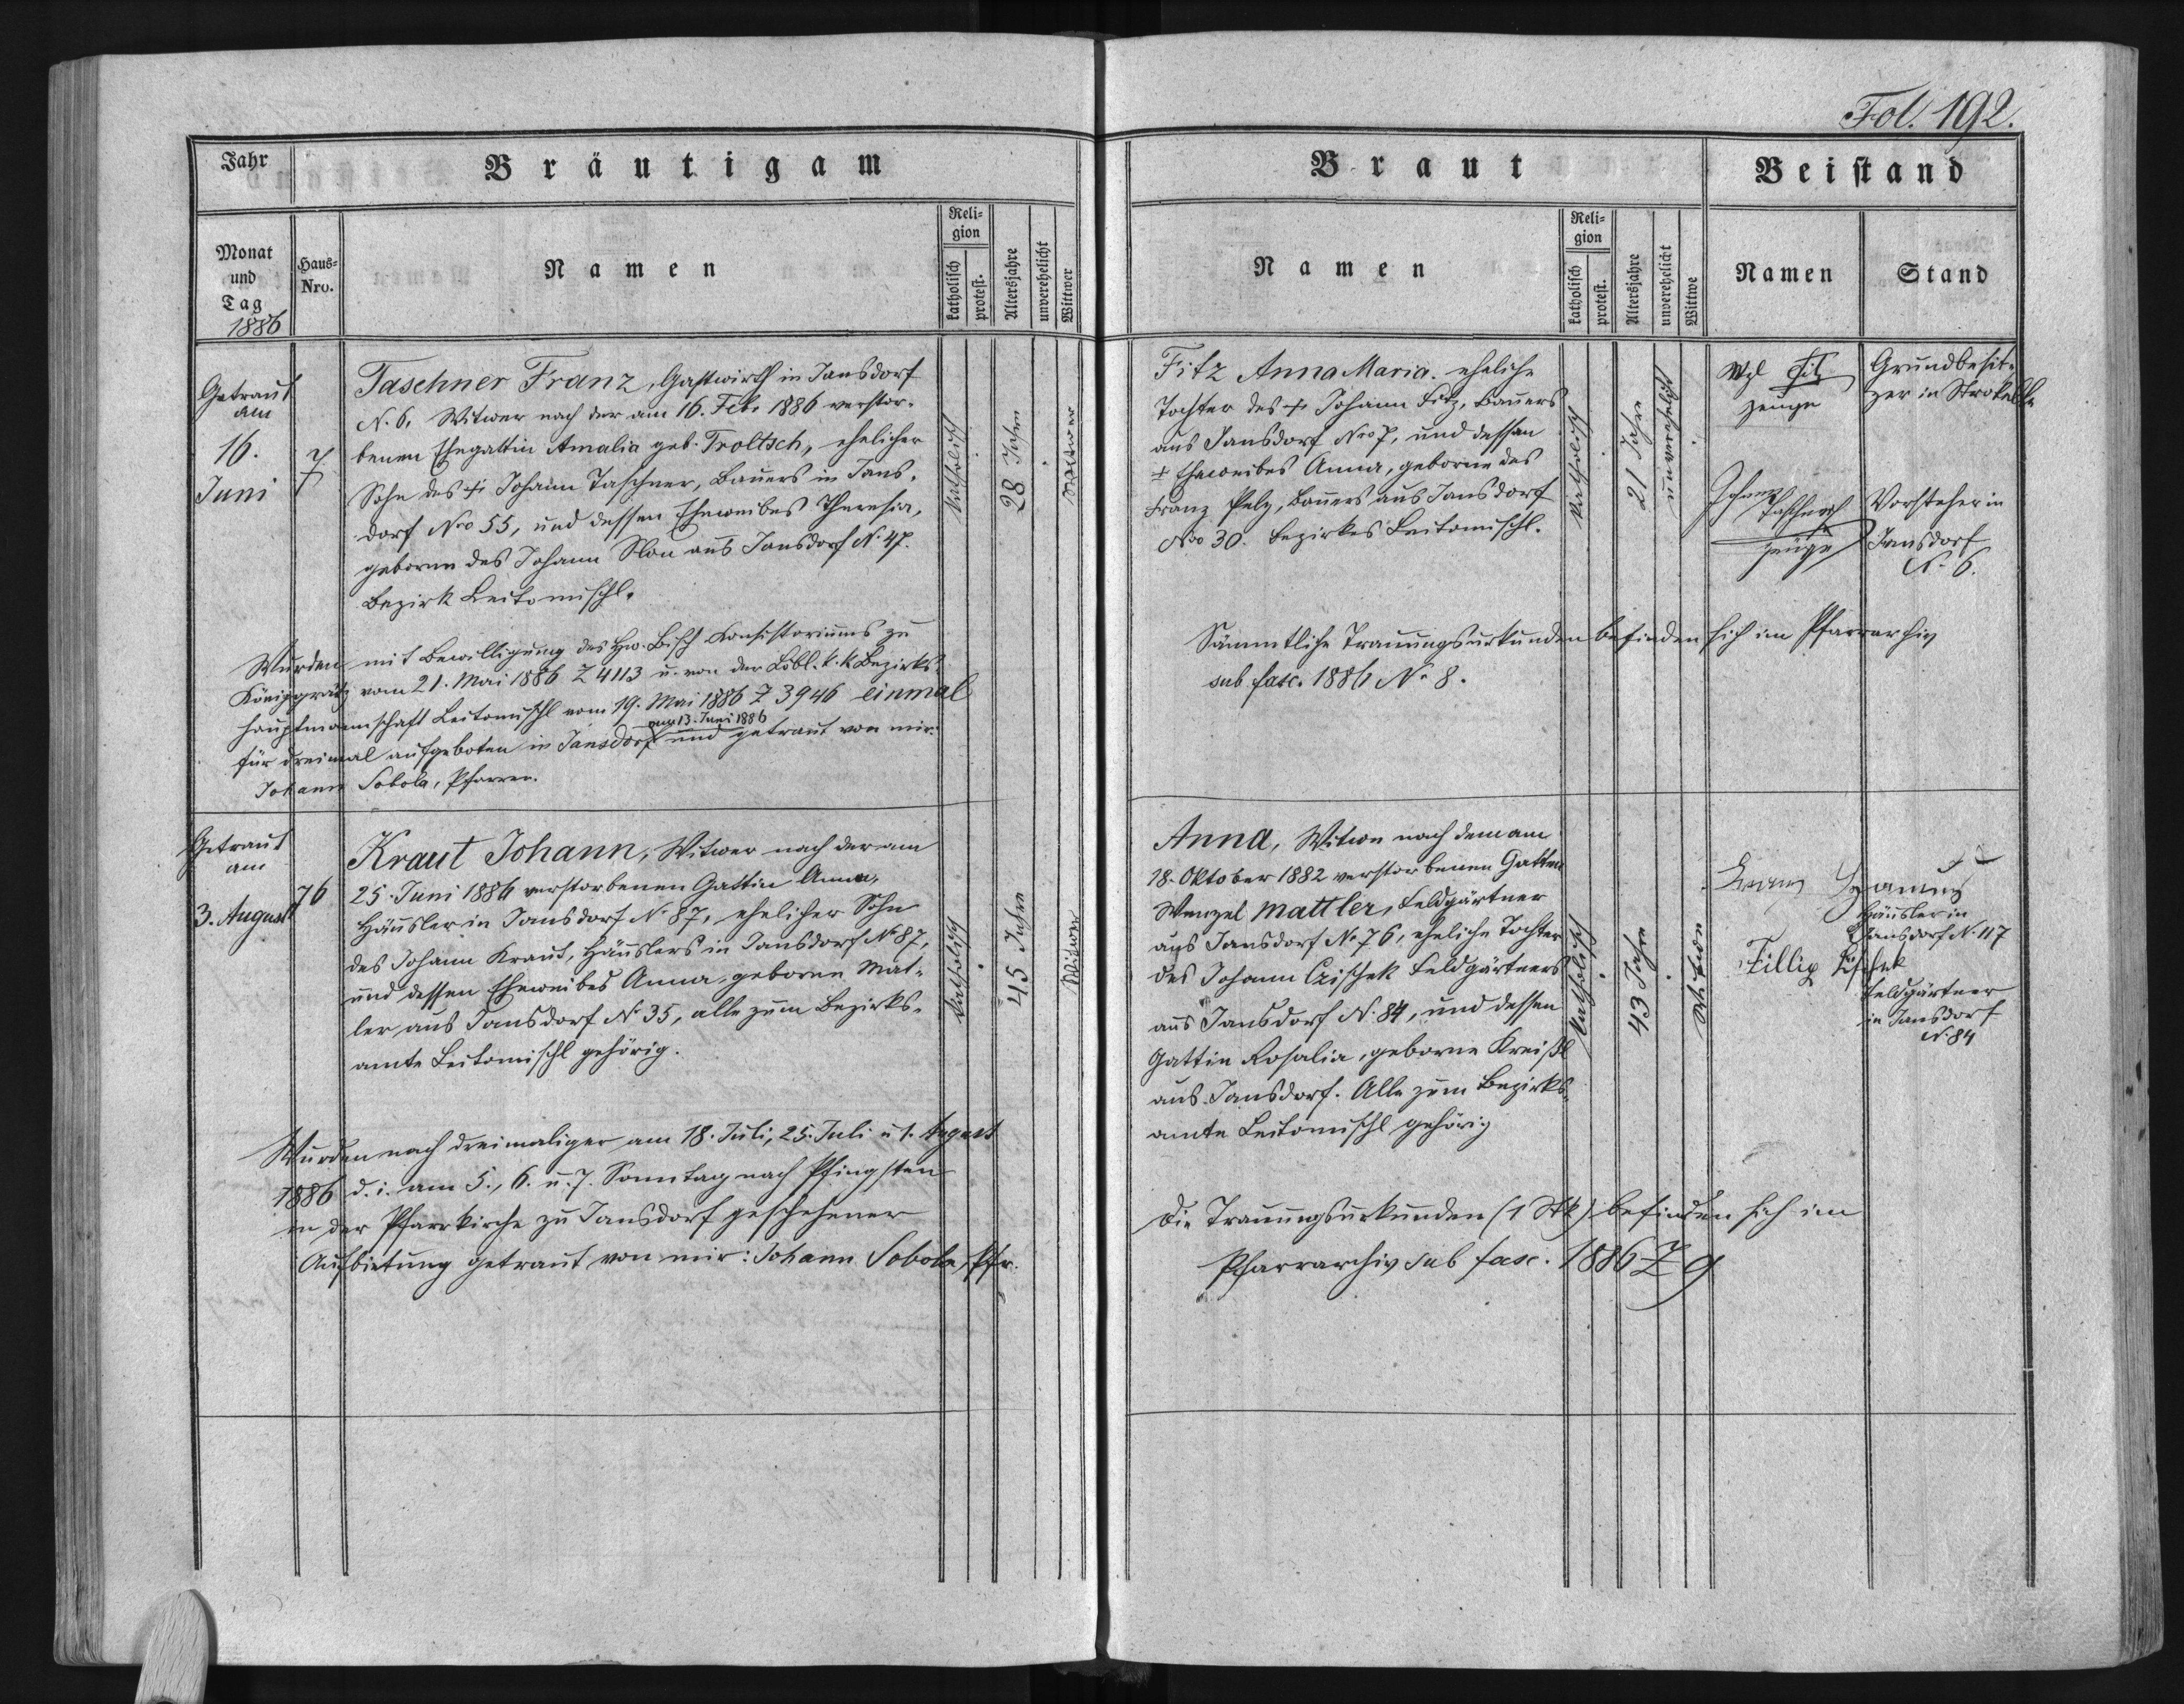 Fol. 192.
Jahr
Bräutigam
Braut
Beistand
Monat
und
Tag
1886
Haus-
Nro.
Namen
Reli-
gion
katholisch
protest.
Altersjahre
unverehelicht
Wittwer
Namen
Reli-
gion
katholisch
protest.
Altersjahre
unverehelicht
Wittwe
Namen
Stand
Getraut
am
16.
Juni
7
Taschner Franz, Gastwirth in Jansdorf
N. 6, Witwer nach der am 16. Feb. 1886 verstor-
benen Ehegattin Amalia geb. Troltsch, ehelicher
Sohn des † Johann Taschner, Bauers in Jans-
dorf Nro 55, und dessen Eheweibes Theresia,
geborne des Johann aus Jansdorf N. 47.
Bezirk Leitomischl.
katholisch
28 Jahre
Witwer
Wurden mit Bewilligung des Hw. Bisch. Konsistoriums zu
Königgrätz vom 21. Mai 1886 Z 4113 u. von der Löbl. k. k. Bezirks-
hauptmannschaft Leitomischl vom 19. Mai 1886 Z 3946 einmal
am 13. Juni 1886
für dreimal aufgeboten in Jansdorf und getraut von mir:
Johann Sobola, Pfarrer.
Fitz Anna Maria, eheliche
Tochter des † Johann Fitz, Bauers
aus Jansdorf Nro 7, und dessen
† Eheweibes Anna, geborne des
Franz Pelz, Bauers aus Jansdorf
Nro 30. Bezirkes Leitomischl.
katholisch
21 Jahre
unverehelicht
Wzl
zeuge
Grundbesit-
zer in Strokelle
Johann
Taschner
zeuge
Vorsteher in
Jansdorf
N. 6.
Sämmtliche Trauungsurkunden befinden sich im Pfarrarchiv
sub fasc. 1886 N. 8.
Getraut
am
3. August
76
Kraut Johann, Witwer nach der am
25. Juni 1886 verstorbenen Gattin Anna,
Häusler in Jansdorf N. 87, ehelicher Sohn
des Johann Kraut, Häuslers in Jansdorf N. 87,
und dessen Eheweibes Anna, geborne Mat-
ler aus Jansdorf N. 35, alle zum Bezirks-
amte Leitomischl gehörig.
katholisch
45 Jahre
Witwer
Wurden nach dreimaliger am 18. Juli, 25. Juli u 1. August
1886 d. i. am 5., 6. u. 7. Sonntag nach Pfingsten
in der Pfarrkirche zu Jansdorf geschehener
Aufbietung getraut von mir: Johann Sobola, Pfr.
Anna, Witwe nach dem am
18. Oktober 1882 verstorbenen Gatten
Wenzel Mattler, Feldgärtner
aus Jansdorf N. 76, eheliche Tochter
des Johann Czischek Feldgärtners
aus Jansdorf N. 84, und dessen
Gattin Rosalia, geborne Kreißl
aus Jansdorf. Alle zum Bezirks-
amte Leitomischl gehörig
katholisch
43 Jahre
Witwe
Häusler in
Jansdorf N. 117
Fillip
Feldgärtner
in Jansdorf
N. 84
Die Trauungsurkunden (1 Stk) befinden sich im
Pfarrarchiv sub fasc. 1886 Z 9